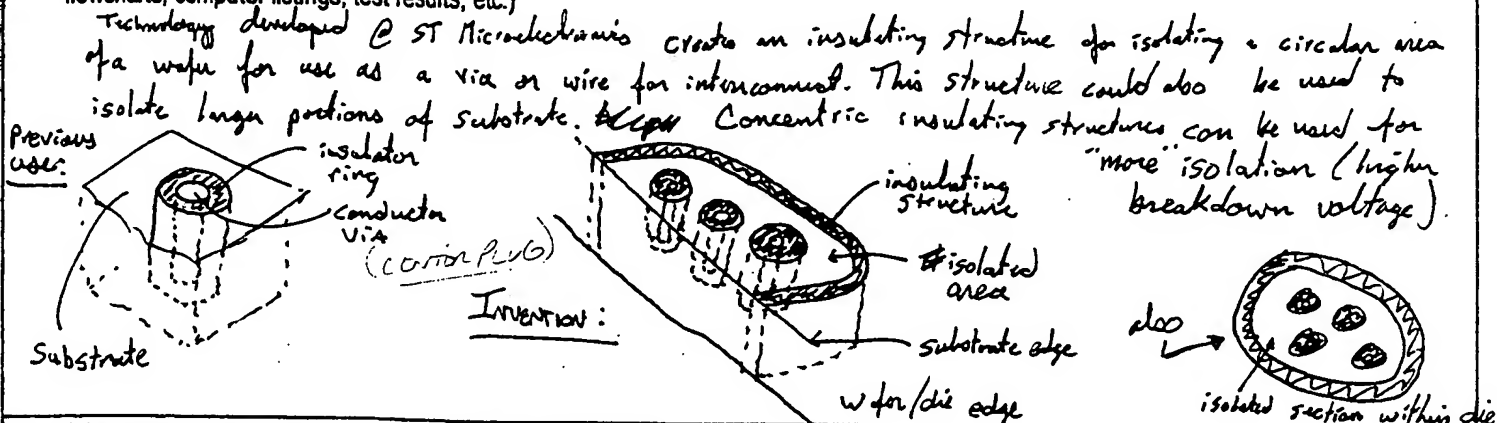 flowcharts, computer listings, test results, etc.)
Technology developed @ ST Microelectronics creates an insulating structure for isolating a circular area
of a wafer for use as a via or wire for interconnect. This structure could also be used to
isolate larger portions of substrate. Concentric insulating structures can be used for
"more" isolation (higher
breakdown voltage).
Previous
use:
insulator
ring
conductor
VIA
Substrate
INVENTION:
insulating
structure
isolated
area
substrate edge
wafer/die edge
also
isolated section within die